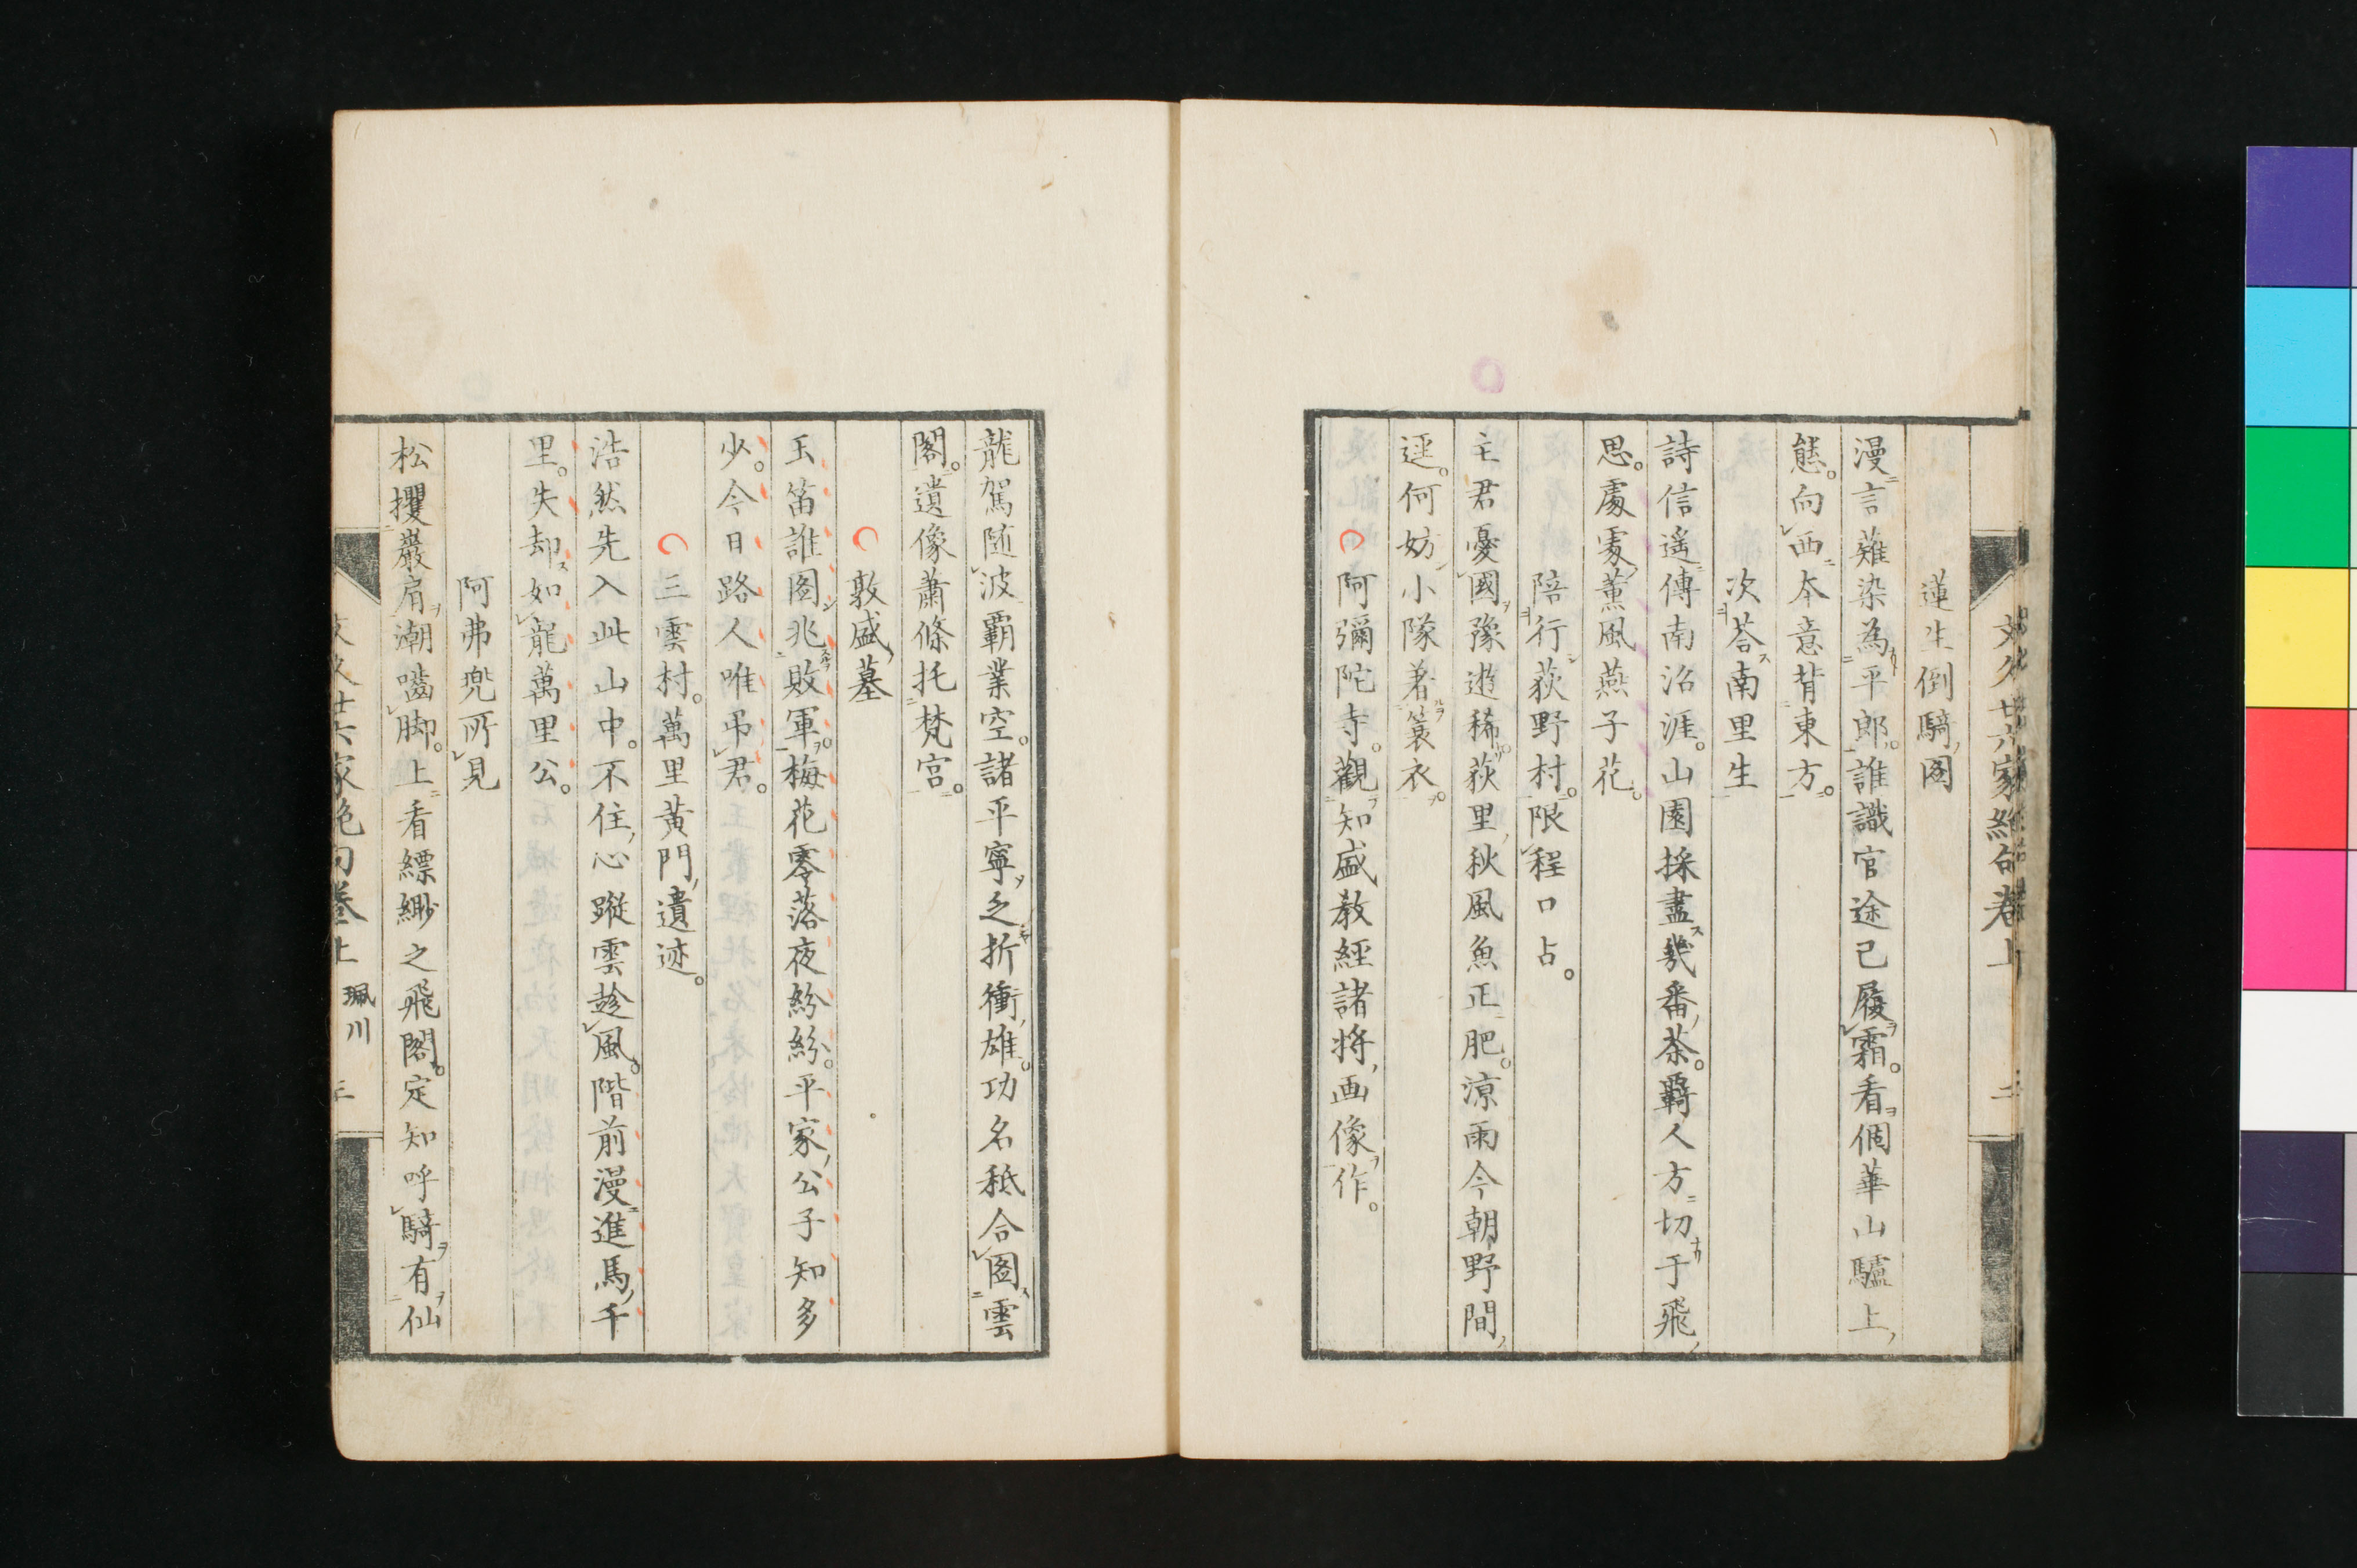 文久廿六家絶句巻上 二
蓮生倒騎圖
漫言薙染為平郎。誰識官途已履霜。看個華山驢上
態。向西本意背東方。
次荅南里生
詩信遙傳南沼涯。山園採盡幾番茶。羇人方切于飛
思。處處薫風燕子花。
陪行荻野村。限程口占。
主君憂國豫遊稀。荻里秋風魚正肥。涼雨今朝野間
逕。何妨小隊著簑衣。
阿彌陀寺。觀知盛教經諸将画像作。
龍駕随波覇業空。諸平寧乏折衝雄。功名秪合圖雲
閣。遺像蕭條托梵宮。
敦盛墓
玉笛誰圖兆敗軍。梅花零落夜紛紛。平家公子知多
少。今日路人唯弔君。
三雲村。萬里黃門遺迹。
浩然先入此山中。不住心蹤雲趁風。階前漫進馬千
里。失却如龍萬里公。
阿弗兜所見
松攫巖肩潮嚙脚。上看縹緲之飛閣。定知呼騎有仙
文久廿六家絶句巻上 珮川 三